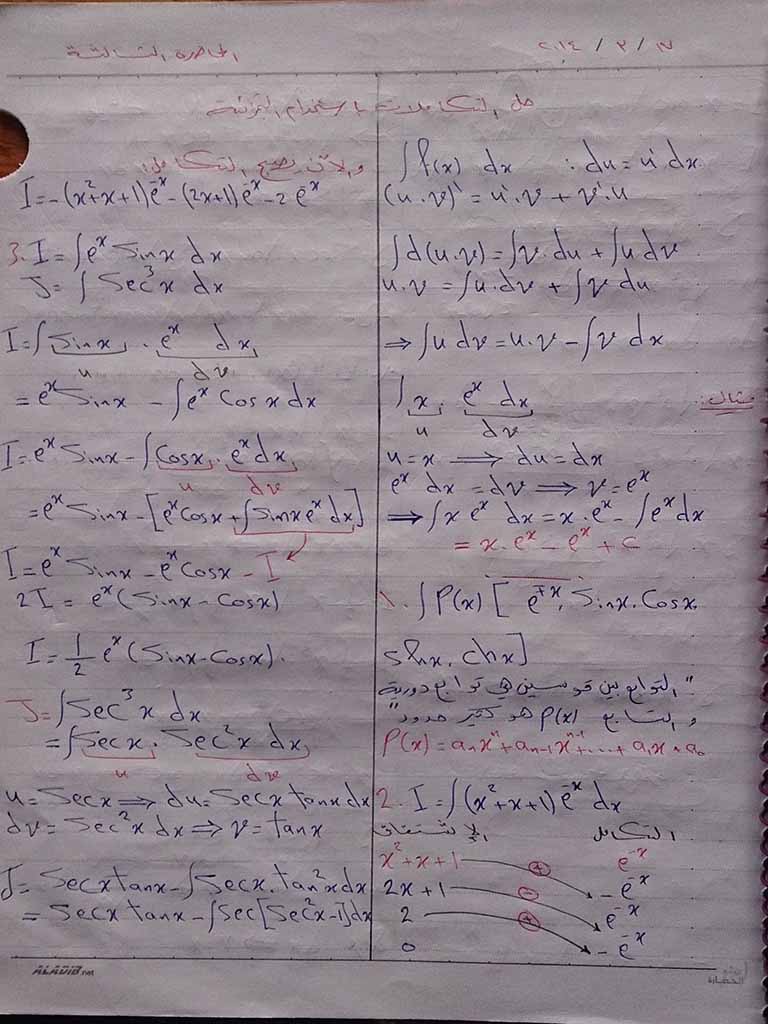 المحاضرة الثالثة
١٧ / ٣ / ٢٠١٤
حل التكاملات باستخدام التجزئة
∫ f(x) dx : du = u' dx
(u . v)' = u'. v + v'. u
∫ d(u.v) = ∫ v. du + ∫ u dv
u. v = ∫ u. dv + ∫ v du
⇒ ∫ u dv = u. v - ∫ v dx
مثال:
∫ x . e^x dx
u dv
u = x ⟹ du = dx
e^x dx = dv ⟹ v = e^x
⇒ ∫ x e^x dx = x. e^x - ∫ e^x dx
= x. e^x - e^x + c
1. ∫ P(x) [ e^{±x}, Sinx. Cosx.
shx. chx]
"التوابع بين قوسين هي توابع دورية
و التابع P(x) هو كثير حدود"
P(x) = aₙxⁿ + aₙ₋₁xⁿ⁻¹ + .... + a₁x + a₀
2. I = ∫ (x² + x + 1) e^{-x} dx
التكامل الإشتقاق
x² + x + 1 + e^{-x}
2x + 1 - - e^{-x}
2 + e^{-x}
0 - e^{-x}
و الآن يصبح التكامل:
I = -(x² + x + 1) e^{-x} - (2x + 1) e^{-x} - 2 e^{-x}
3. I = ∫ e^x Sinx dx
J = ∫ Sec³x dx
I = ∫ Sinx . e^x dx
u dv
= e^x Sinx - ∫ e^x Cosx dx
I = e^x Sinx - ∫ Cosx . e^x dx
u dv
= e^x Sinx - [e^x Cosx + ∫ Sinx e^x dx]
I = e^x Sinx - e^x Cosx - I
2I = e^x (Sinx - Cosx)
I = 1/2 e^x (Sinx - Cosx).
J = ∫ Sec³x dx
= ∫ Secx . Sec²x dx
u dv
u = Secx ⟹ du = Secx tanx dx
dv = Sec²x dx ⟹ v = tanx
J = Secx tanx - ∫ Secx. tan²x dx
= Secx tanx - ∫ Sec [Sec²x - 1] dx
ALADIB.net